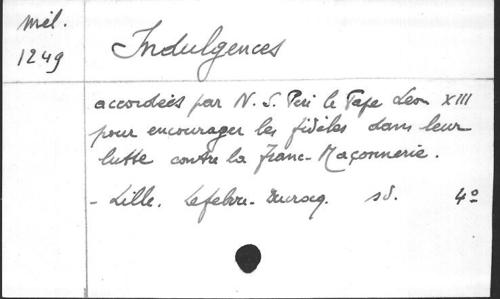 Mél.
1249
Indulgences
accordées par N. S. Père le Pape Léon XIII
pour encourager les fidèles dans leur
lutte contre la Franc-Maçonnerie.
- Lille. Lefebvre-Ducrocq. sd. 4º